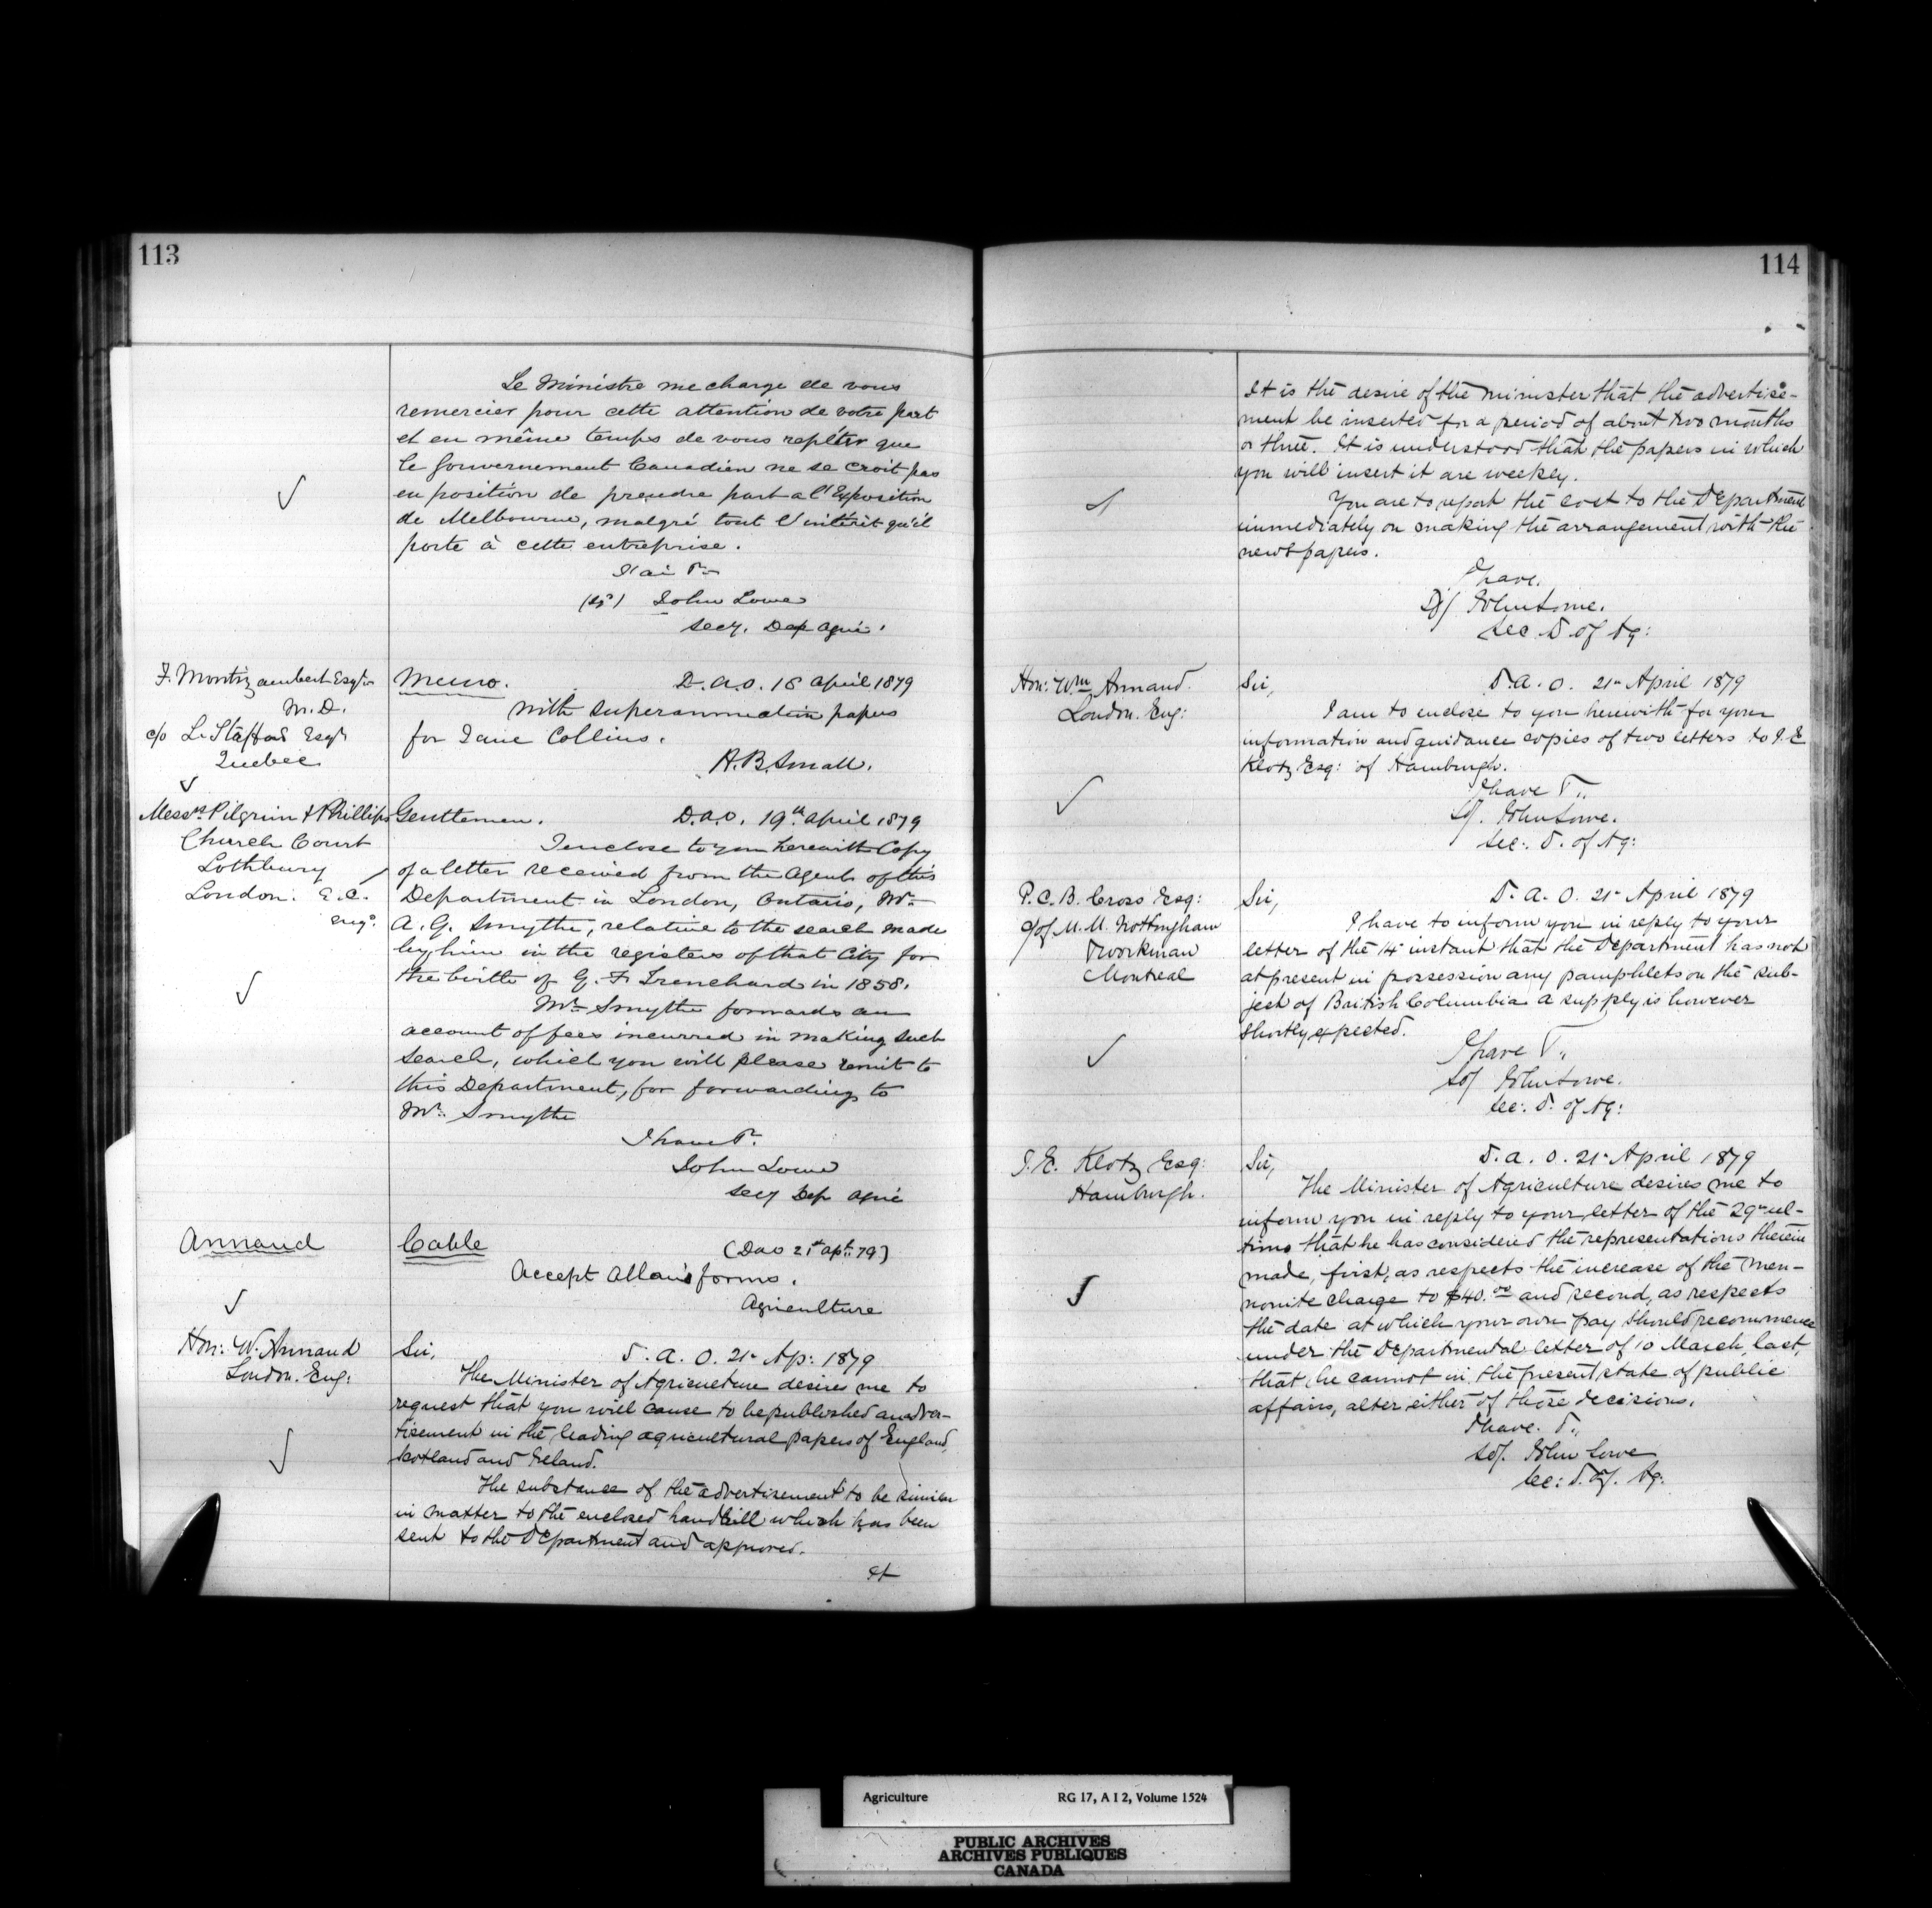 113
Le Ministre me charge de vous
remercier pour cette attention de votre part
et en même temps de vous repéter que
le Gouvernement Canadien ne se croit pas
en position de prendre part a l'Exposition
de Melbourne, malgré tout l'intérêt qu'il
porte à cette entreprise.
J'ai &c
(sd) John Lowe
Secy. Dep Agric.
F. Montizambert Esqr
M.D.
c/o L. Stafford Esqr
Quebec
Memo. D.A.O. 18 April 1879
With superannuation papers
for Jane Collins.
H.B. Small.
Messrs Pilgrim & Phillips
Church Court
Lothbury
London. E.C.
Engd.
Gentlemen. D.A.O. 19th April 1879
I enclose to you herewith Copy
of a letter received from the Agent of this
Department in London, Ontario, Mr.
A. G. Smythe, relative to the search made
by him in the registers of that City for
the birth of G. F. Trenchard in 1858.
Mr. Smythe forwards an
account of fees incurred in making such
search, which you will please remit to
this Department, for forwarding to
Mr. Smythe
I have &c.
John Lowe
Secy Dep Agric
Annand
Cable (DAO 21st Apl. 79.)
Accept Allan's forms.
Agriculture
Hon: W. Annand
London. Eng:
Sir, D. A. O. 21st Ap: 1879
The Minister of Agriculture desires me to
request that you will cause to be published an adver-
tisement in the leading agricultural papers of England,
Scotland and Ireland.
The substance of the advertisement to be similar
in matter to the enclosed handbill which has been
sent to the Department and approved.
It
114
It is the desire of the minister that the advertise-
ment be inserted for a period of about two months
or three. It is understood that the papers in which
you will insert it are weekly.
You are to report the cost to the Department
immediately on making the arrangement with the
newspapers.
I have.
Sd/ John Lowe.
Sec. D. of Ag:
Hon: Wm Annand.
London. Eng:
Sir, D. A. O. 21st April 1879
I am to enclose to you herewith for your
information and guidance copies of two letters to J. E
Klotz Esq: of Hamburgh.
I have &c.,
Sd/. John Lowe.
Sec: D. of Ag:
P. C. B. Cross Esq:
c/o M. M. Nottingham
& Workman
Montreal
Sir, D. A. O. 21st April 1879
I have to inform you in reply to your
letter of the 14th instant that the Department has not
at present in possession any pamphlets on the sub-
ject of British Columbia a supply is however
shortly expected.
I have &c.,
Sd/ John Lowe.
Sec: D. of Ag:
J. E. Klotz Esq:
Hamburgh.
Sir, D. A. O. 21st April 1879
The Minister of Agriculture desires me to
inform you in reply to your letter of the 29th ul-
timo that he has considered the representations therein
made, first, as respects the increase of the Men-
nonite charge to $40.00 and second, as respects
the date at which your own pay should recommence
under the Departmental letter of 10 March, last,
that he cannot in the present state of public
affairs, alter either of those decisions.
I have. &c.,
Sd/. John Lowe
Sec: D. of. Ag:
Agriculture RG 17, A I 2, Volume 1524
PUBLIC ARCHIVES
ARCHIVES PUBLIQUES
CANADA